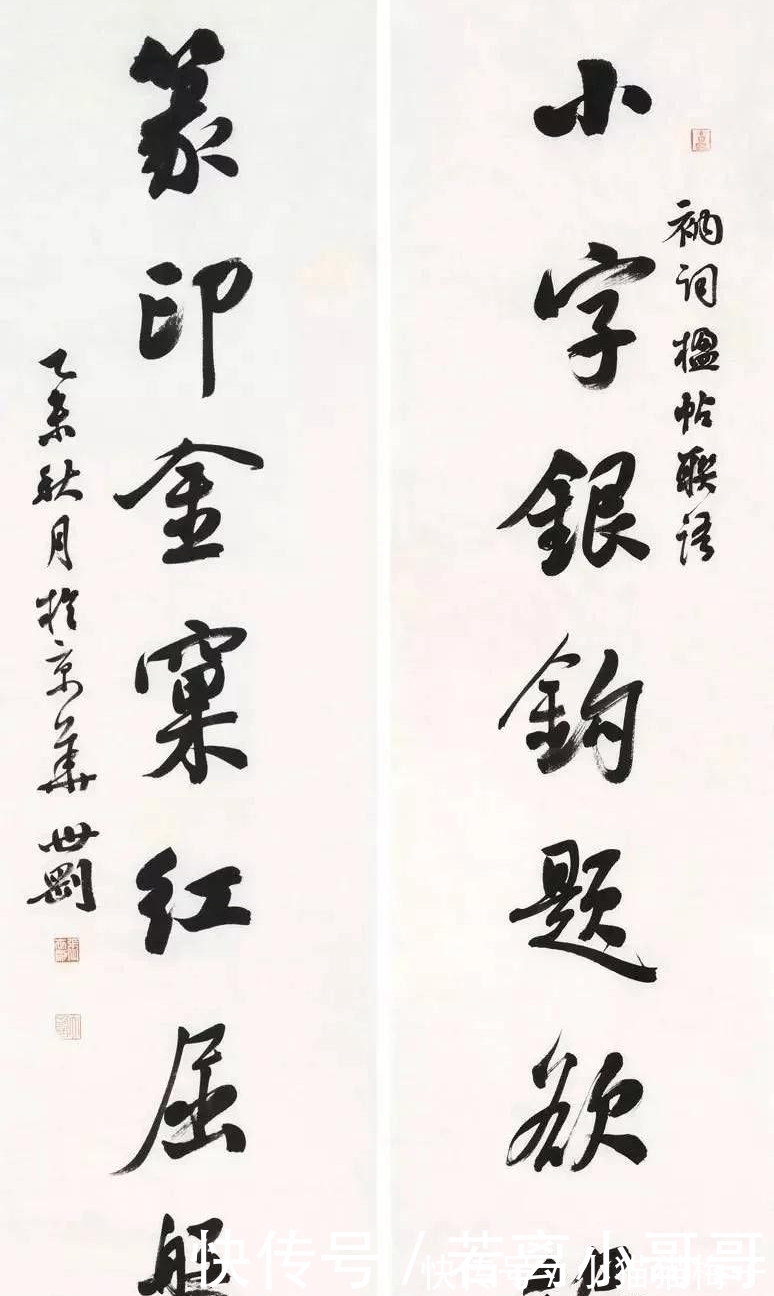 衲词楹帖联语
小字银钩题欲
篆印金窠红屈
乙未秋月於京华世刚
快传号 / 若离小哥哥